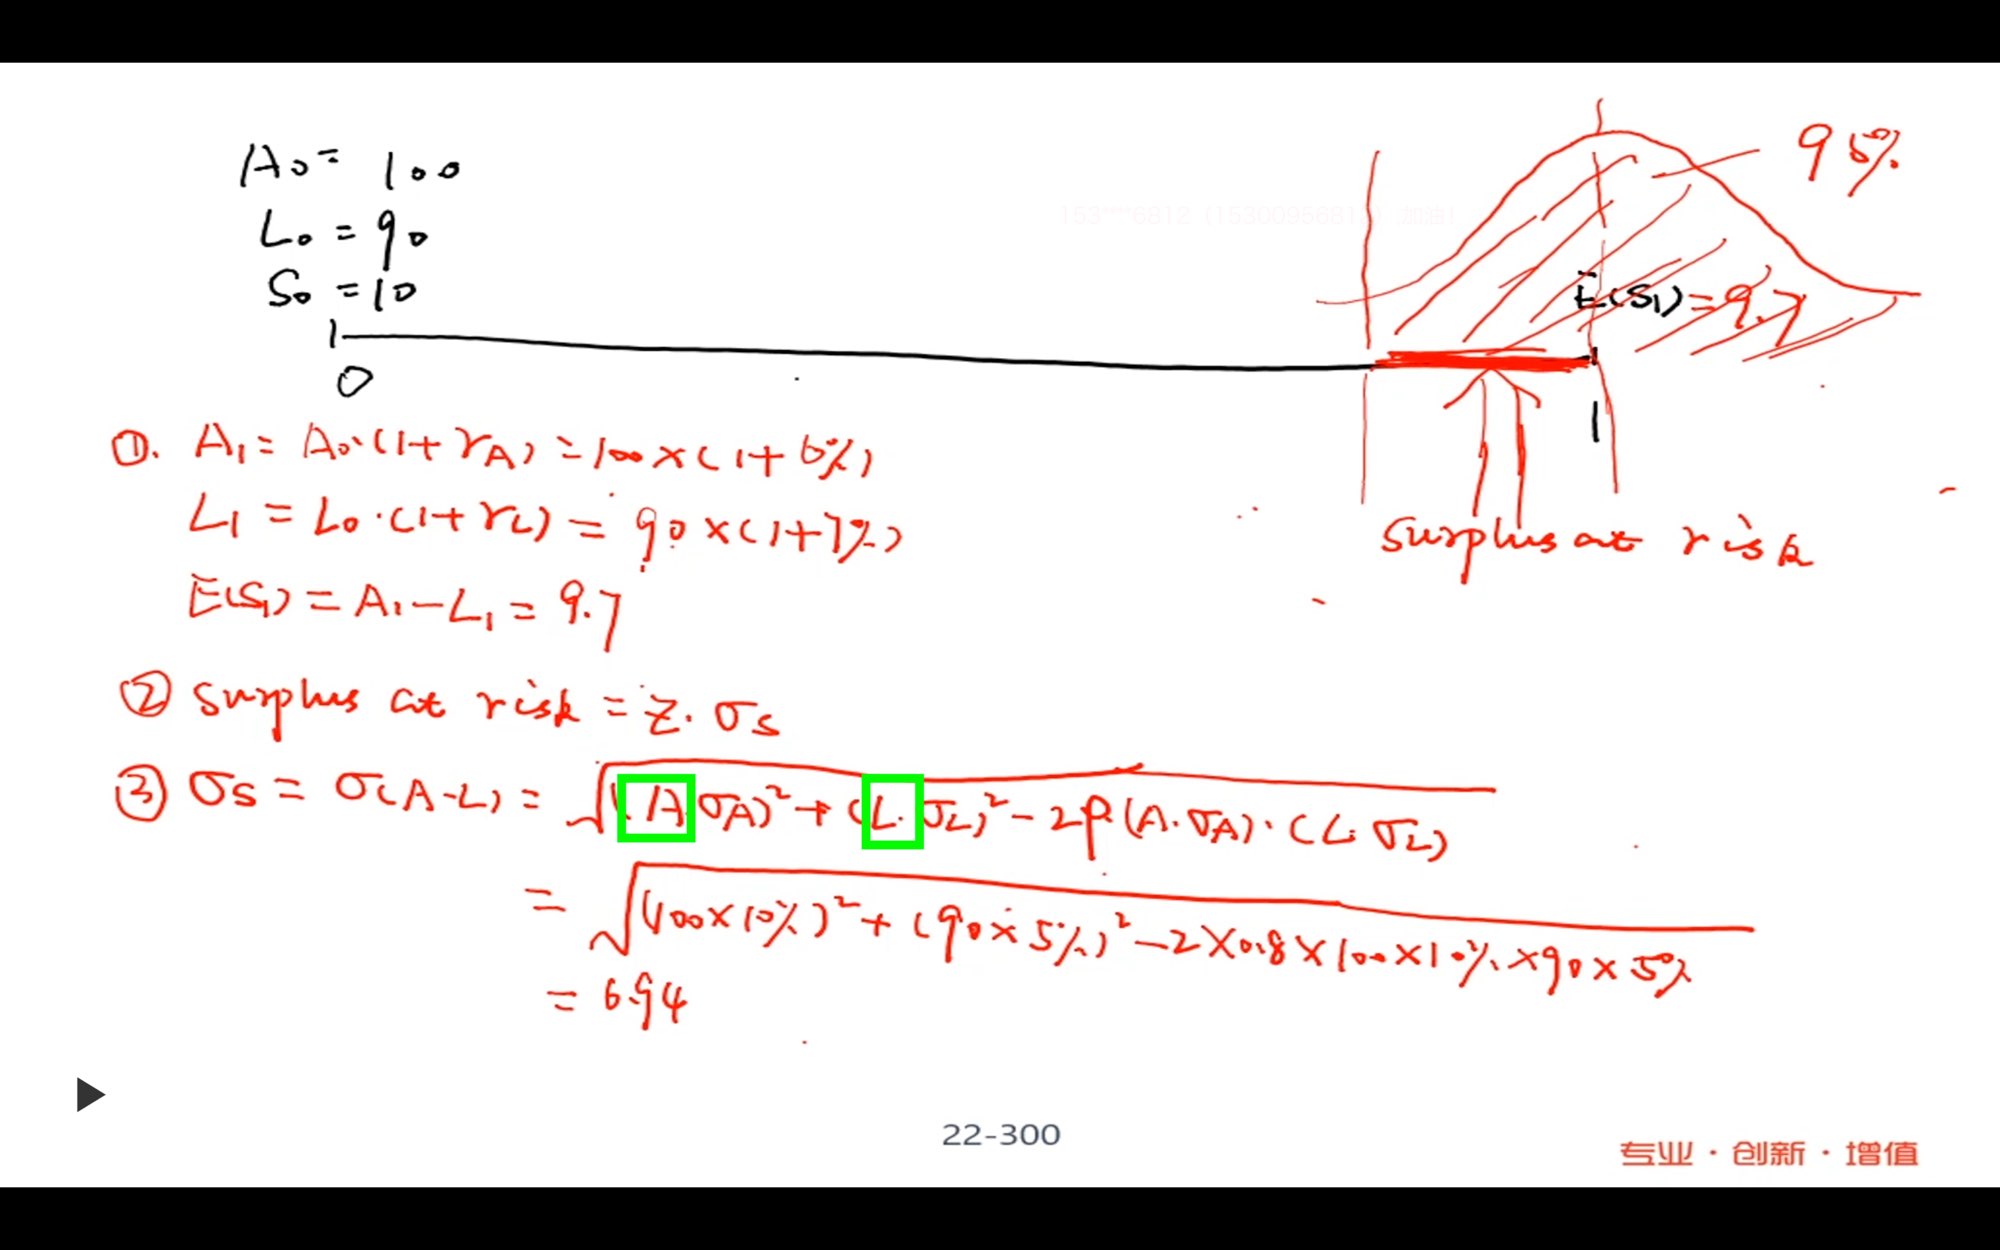 A₀ = 100
L₀ = 90
S₀ = 10
95%
E(S₁) = 9.7
0
1
surplus at risk
①. A₁ = A₀·(1+rA) = 100×(1+6%)
L₁ = L₀·(1+rL) = 90×(1+7%)
E(S₁) = A₁-L₁ = 9.7
② surplus at risk = z·σs
③ σs = σ(A-L) = √(A·σA)²+(L·σL)²-2ρ(A·σA)·(L·σL)
= √(100×10%)²+(90×5%)²-2×0.8×100×10%×90×5%
= 6.94
22-300
专业·创新·增值